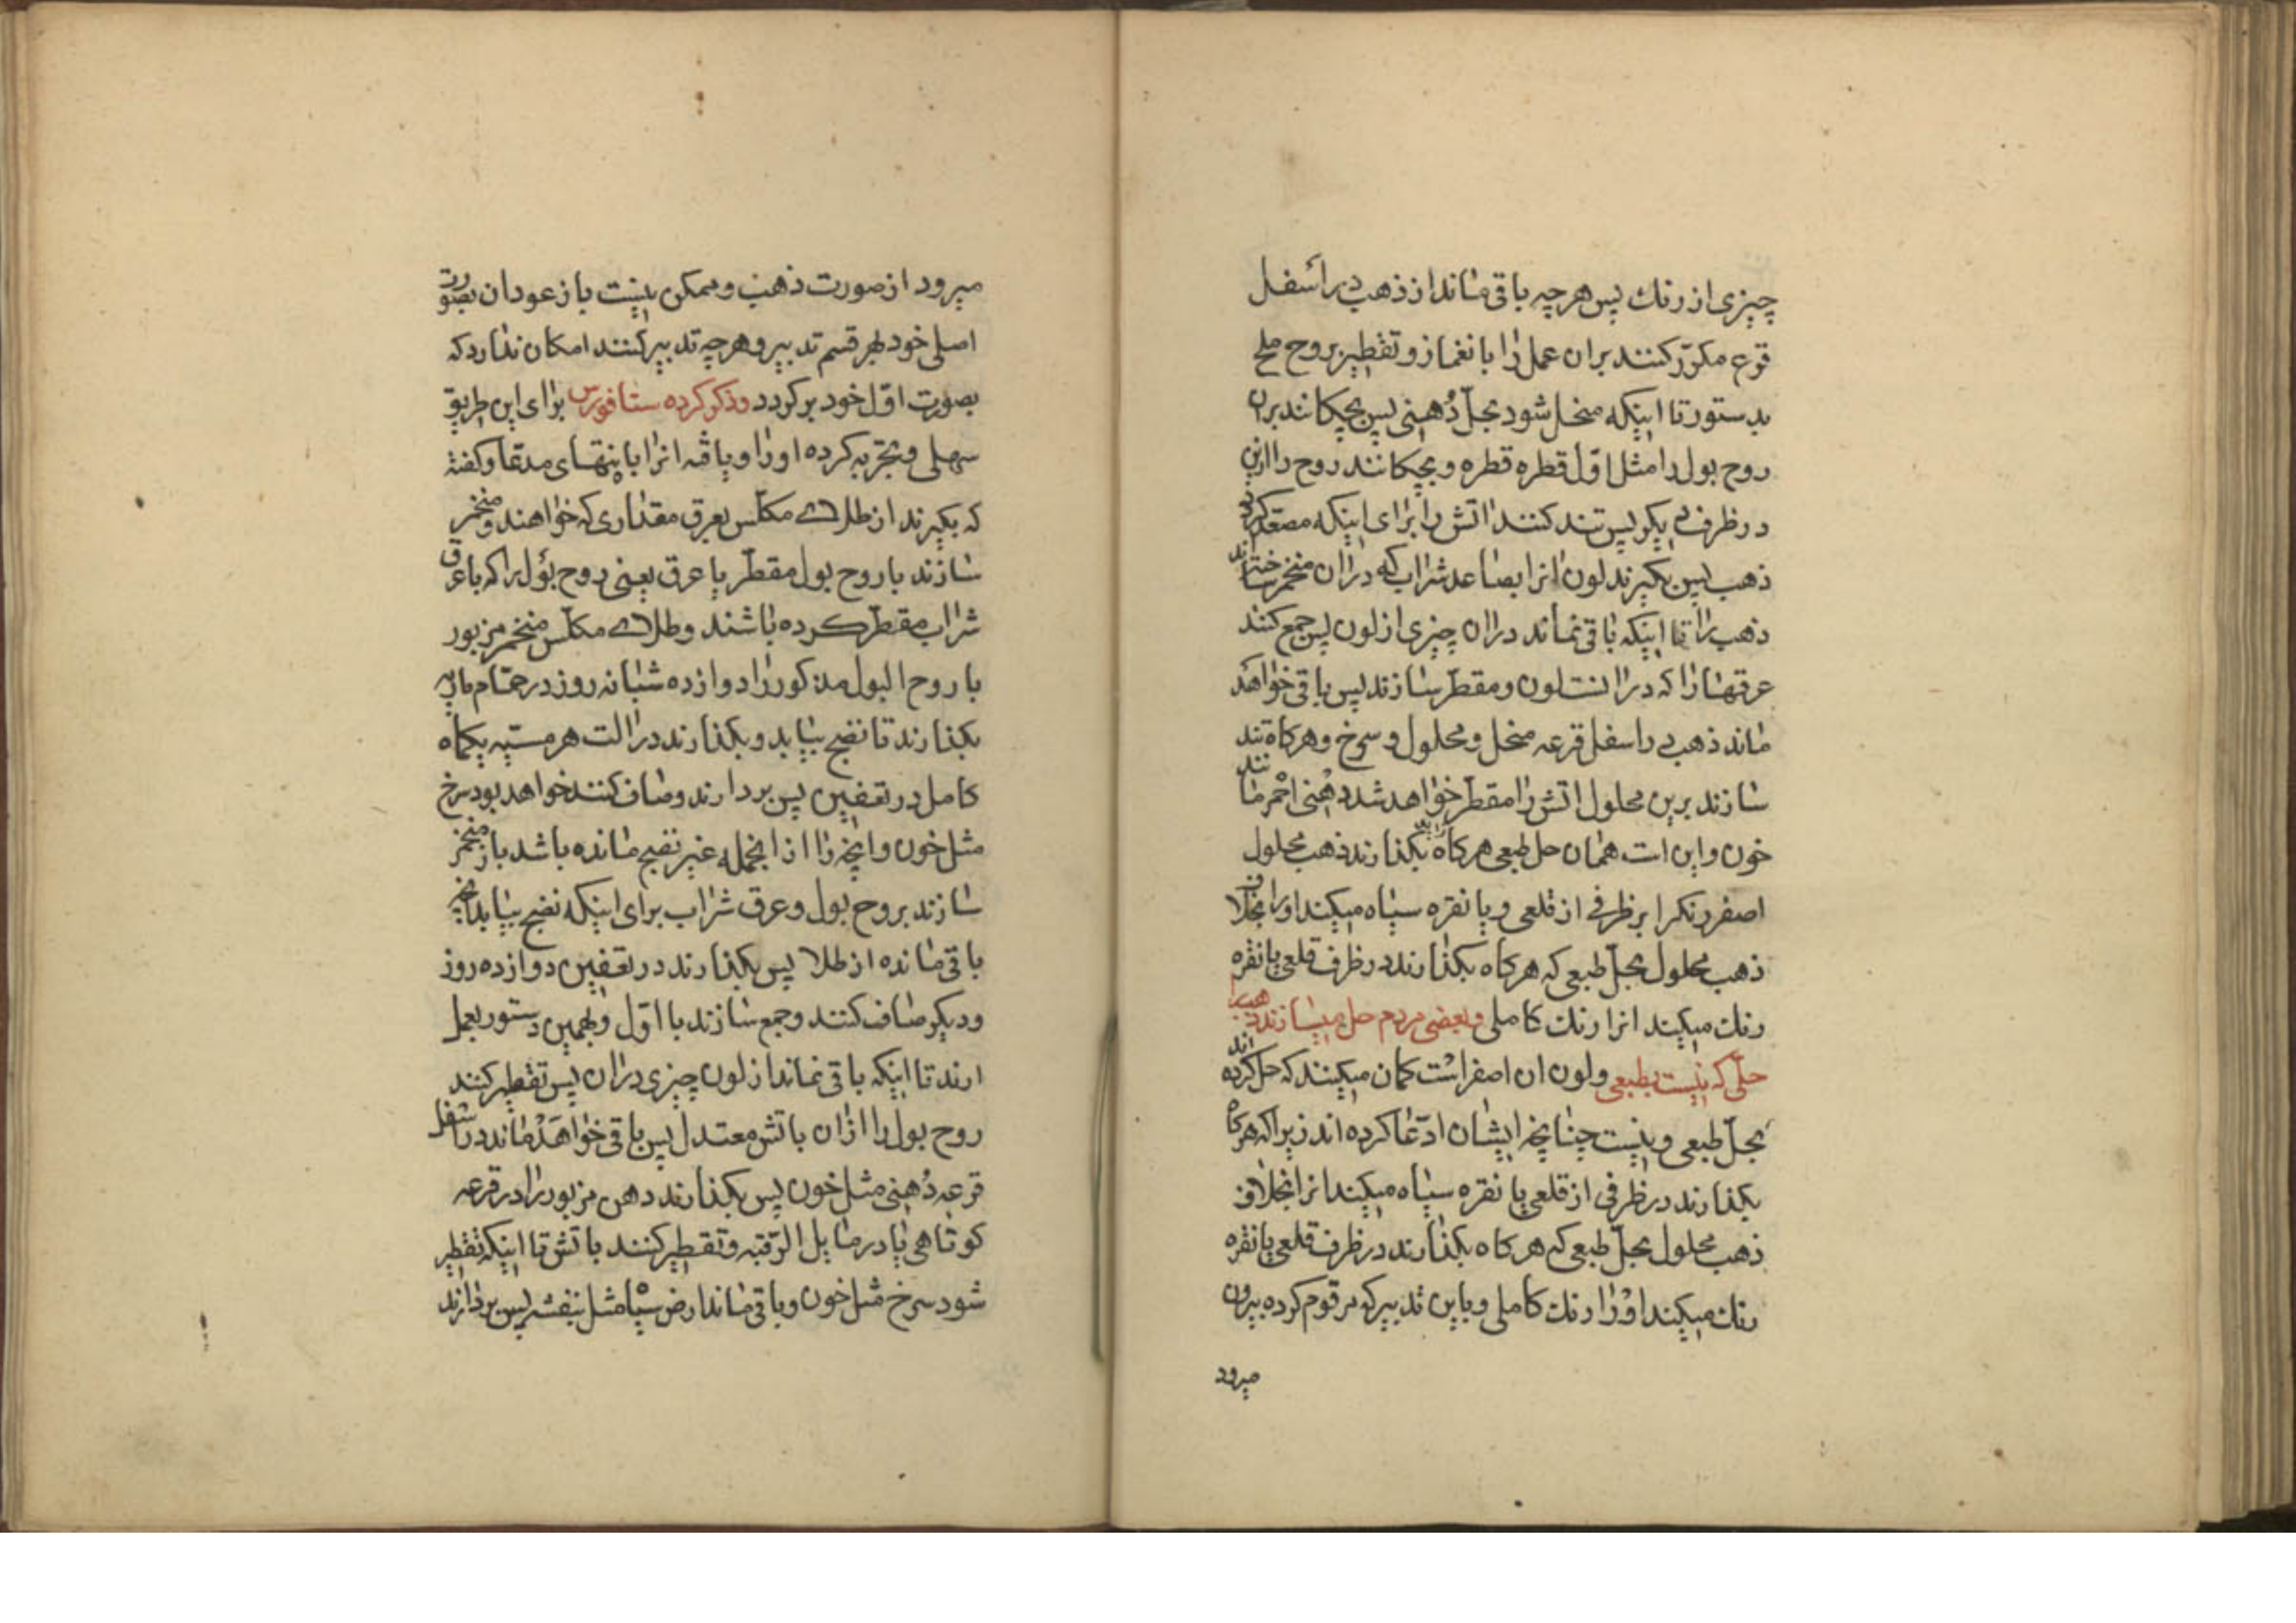 چیزی از رنك پس هر چه باقی ماند از ذهب در اسفل
قرع مکرّر کنند بران عمل را با نغماز و تقطیر بروح ملح
بدستور تا اینکه منحل شود بحلّ دُهنی پس بچکانند بران
روح بول را مثل اوّل قطره قطره و بچکانند روح را ازین
در ظرف دیکر پس تند کنند اتش را برای اینکه مصعد کردد
ذهب پس بکیرند لون انرا بصاعد شراب که دران منخمر ساخته اند
ذهب را تا اینکه باقی نماند دران چیزی از لون پس جمع کنند
عرقها را که در انست لون و مقطّر سازند پس باقی خواهد
ماند ذهب در اسفل قرعه منحل و محلول و سرخ و هرکاه تند
سازند برین محلول اتش را مقطّر خواهد شد دهنی احمر مانند
خون و این است همان حل طبعی هرکاه بکذارند ذهب محلول
اصفر رنکرا در ظرفی از قلعی و یا نقره سیاه میکند او را بخلاف
ذهب محلول بحلّ طبعی که هرکاه بکذارند در ظرف قلعی یا نقره
رنك میکند انرا رنك کاملی و بعضی مردم حل میسازند ذهب را
حلّی که نیست بطبعی و لون ان اصفر است کمان میکنند که حل کرده اند
بحلّ طبعی و نیست چنانچه ایشان ادّعا کرده اند زیرا که هرکاه
بکذارند در ظرفی از قلعی یا نقره سیاه میکند انرا بخلاف
ذهب محلول بحلّ طبعی که هرکاه بکذارند در ظرف قلعی یا نقره
رنك میکند او را رنك کاملی و باین تدبیر که مرقوم کرده بیرون
میرود
میرود از صورت ذهب و ممکن نیست باز عود ان بصورت
اصلی خود بهر قسم تدبیر و هر چه تدبیر کنند امکان ندارد که
بصورت اوّل خود بر کردد و ذکر کرده ستافورس برای این طریق
سهلی و تجربه کرده او را و یافته انرا با پنتهای مدعا و کفته
که بکیرند از طلای مکلّس بعرق مقداری که خواهند و منخمر
سازند با روح بول مقطّر با عرق یعنی روح بول را که با عرق
شراب مقطّر کرده باشند و طلای مکلّس منخمر مزبور
با روح البول مذکور را دوازده شبانه روز در حمّام ماریه
بکذارند تا نضج بیابد و بکذارند در الت هرمسیه یکماه
کامل در تعفین پس بردارند و صاف کنند خواهد بود سرخ
مثل خون و انچه را از انجمله غیر نضج مانده باشد باز منخمر
سازند بروح بول و عرق شراب برای اینکه نضج بیابد انچه
باقی مانده از طلا پس بکذارند در تعفین دوازده روز
و دیکر صاف کنند و جمع سازند با اوّل و بهمین دستور بعمل
ارند تا اینکه باقی نماند از لون چیزی دران پس تقطیر کنند
روح بول را ازان باتش معتدل پس باقی خواهد ماند در اسفل
قرعه دُهنی مثل خون پس بکذارند دهن مزبور را در قرعه
کوتاهی یا در مایل الرّقبه و تقطیر کنند باتش تا اینکه تقطیر
شود سرخ مثل خون و باقی ماند ارض سیاه مثل بنفشه پس بردارند